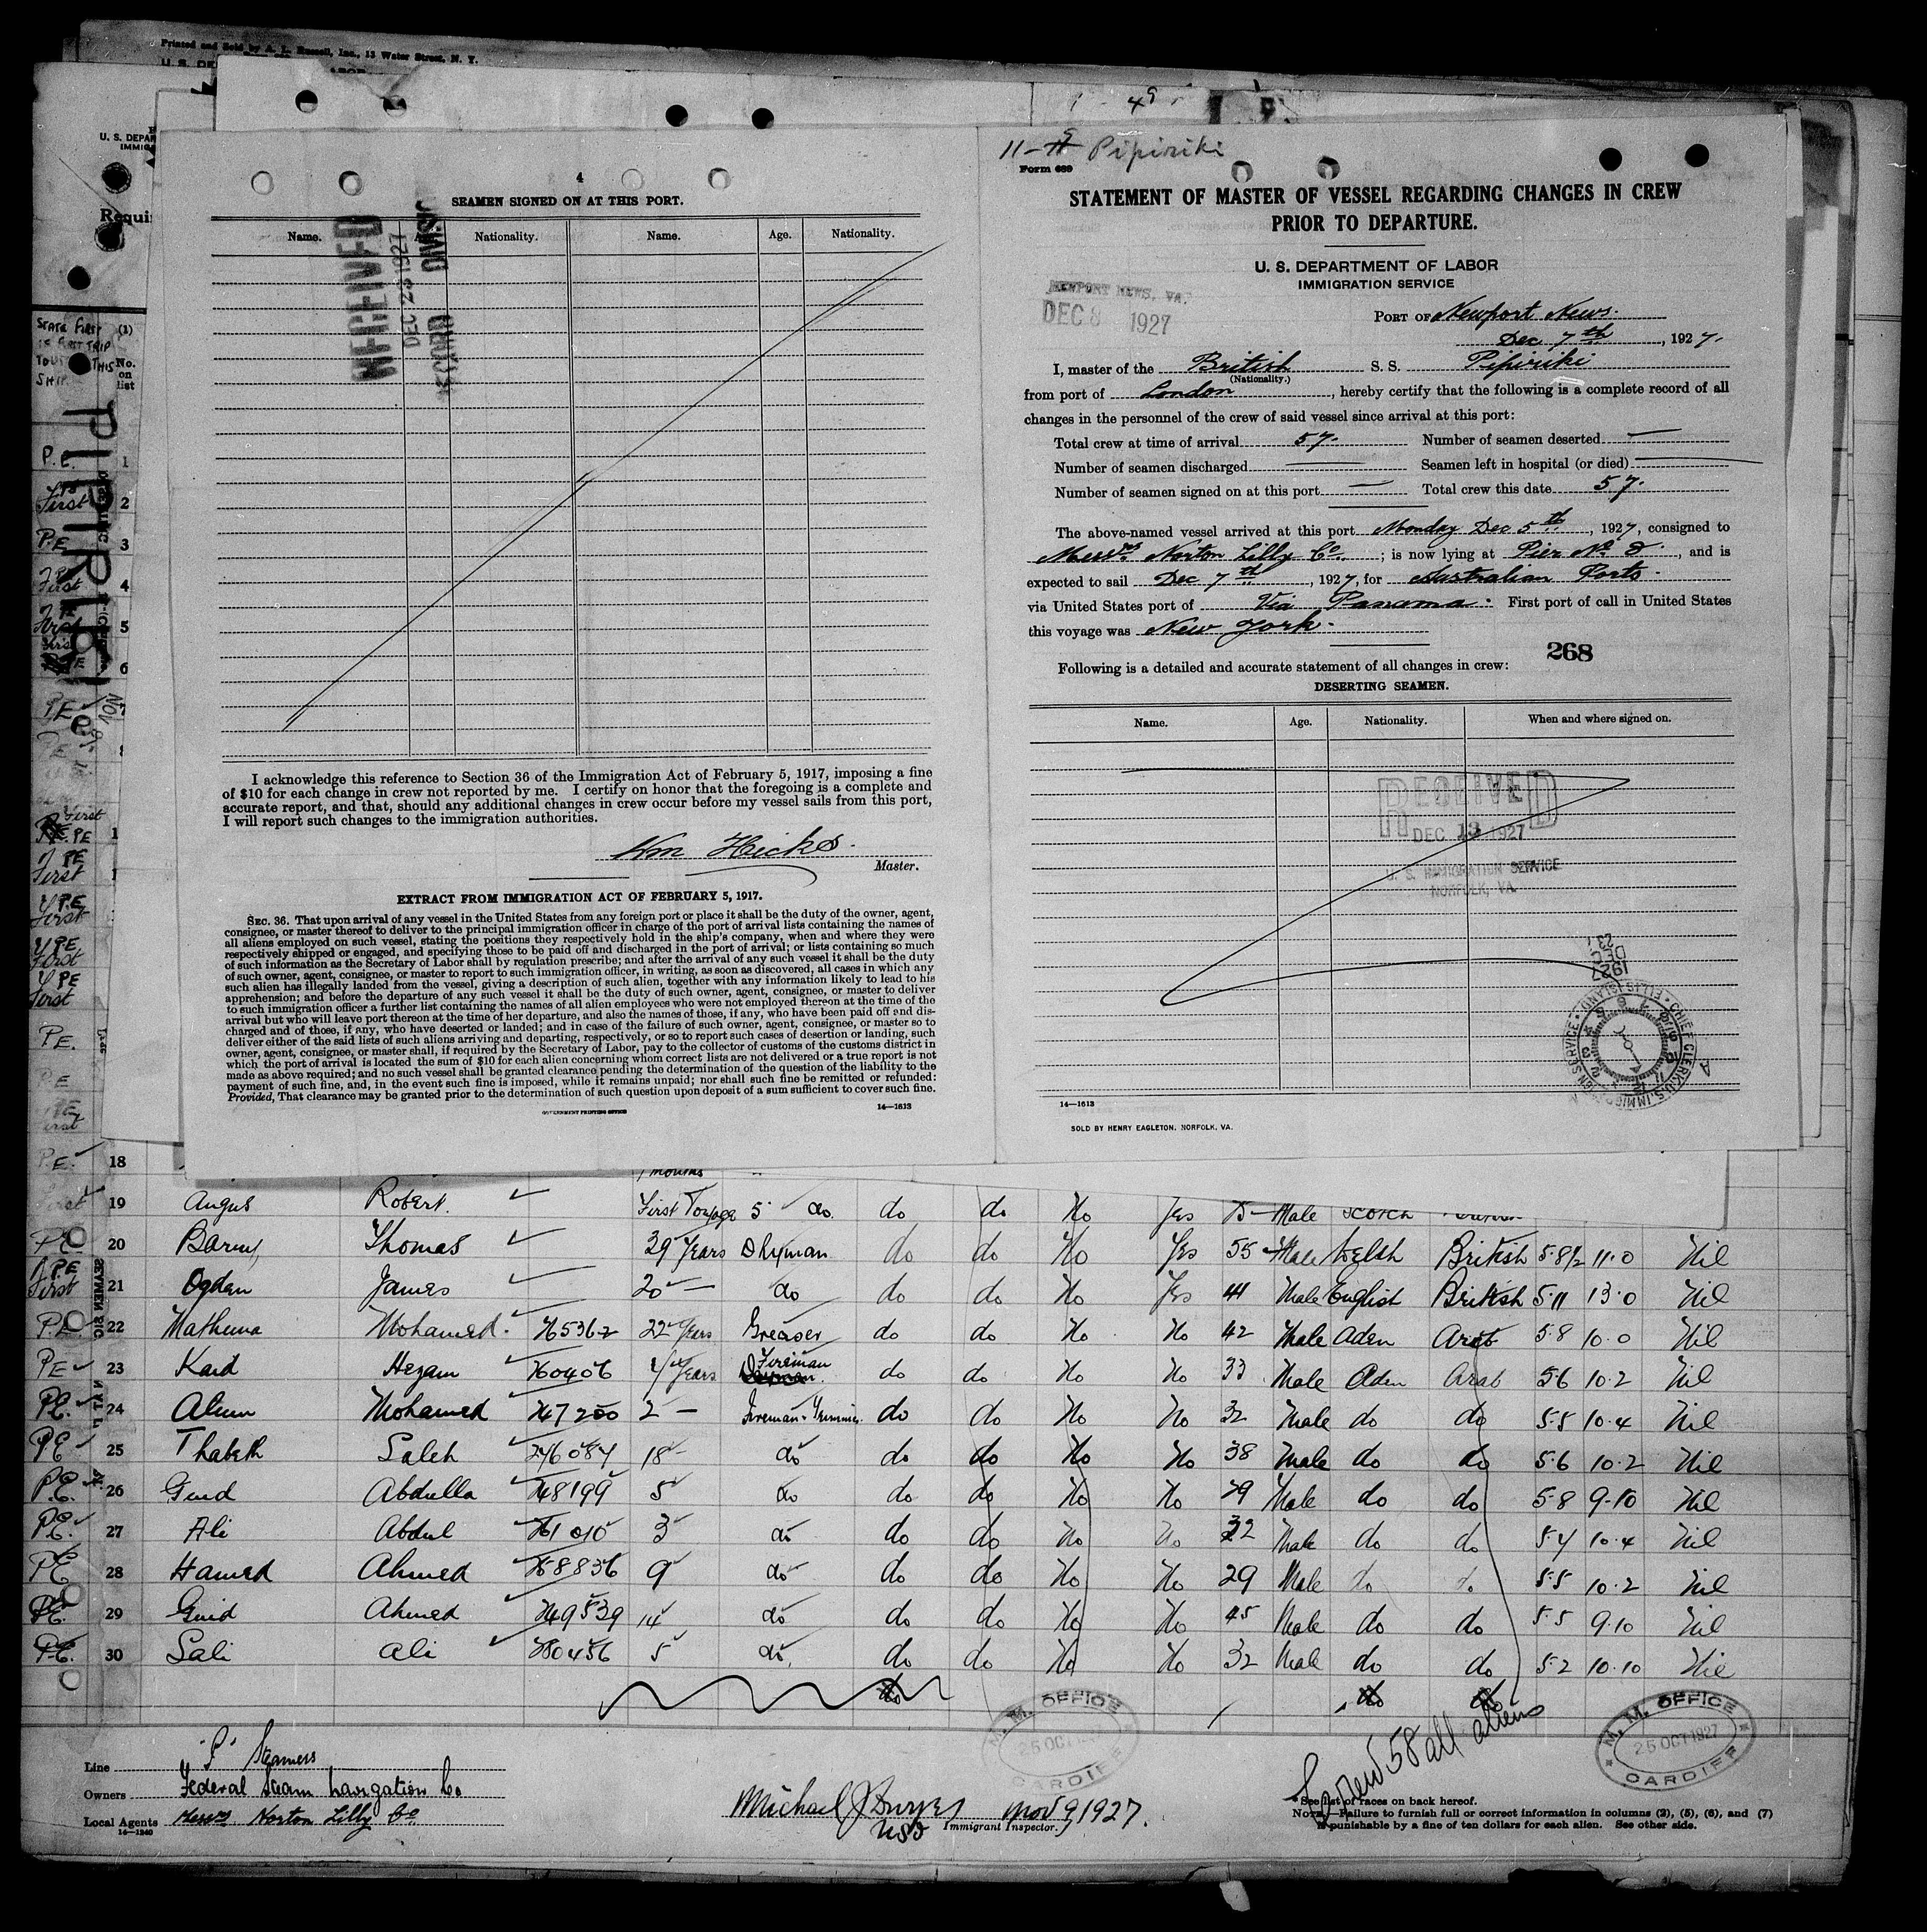 Printed and Sold by A. L. Russell, Inc., 13 Water Street, N. Y.
4
SEAMEN SIGNED ON AT THIS PORT.
Name. Nationality. Name. Age. Nationality.
RECEIVED
DEC 23 1927
RECORD DIVISION
I acknowledge this reference to Section 36 of the Immigration Act of February 5, 1917, imposing a fine
of $10 for each change in crew not reported by me. I certify on honor that the foregoing is a complete and
accurate report, and that, should any additional changes in crew occur before my vessel sails from this port,
I will report such changes to the immigration authorities.
Wm Hickes.
Master.
EXTRACT FROM IMMIGRATION ACT OF FEBRUARY 5, 1917.
SEC. 36. That upon arrival of any vessel in the United States from any foreign port or place it shall be the duty of the owner, agent,
consignee, or master thereof to deliver to the principal immigration officer in charge of the port of arrival lists containing the names of
all aliens employed on such vessel, stating the positions they respectively hold in the ship's company, when and where they were
respectively shipped or engaged, and specifying those to be paid off and discharged in the port of arrival; or lists containing so much
of such information as the Secretary of Labor shall by regulation prescribe; and after the arrival of any such vessel it shall be the duty
of such owner, agent, consignee, or master to report to such immigration officer, in writing, as soon as discovered, all cases in which any
such alien has illegally landed from the vessel, giving a description of such alien, together with any information likely to lead to his
apprehension; and before the departure of any such vessel it shall be the duty of such owner, agent, consignee, or master to deliver
to such immigration officer a further list containing the names of all alien employees who were not employed thereon at the time of the
arrival but who will leave port thereon at the time of her departure, and also the names of those, if any, who have been paid off and dis-
charged and of those, if any, who have deserted or landed; and in case of the failure of such owner, agent, consignee, or master so to
deliver either of the said lists of such aliens arriving and departing, respectively, or so to report such cases of desertion or landing, such
owner, agent, consignee, or master shall, if required by the Secretary of Labor, pay to the collector of customs of the customs district in
which the port of arrival is located the sum of $10 for each alien concerning whom correct lists are not delivered or a true report is not
made as above required; and no such vessel shall be granted clearance pending the determination of the question of the liability to the
payment of such fine, and, in the event such fine is imposed, while it remains unpaid; nor shall such fine be remitted or refunded:
Provided, That clearance may be granted prior to the determination of such question upon deposit of a sum sufficient to cover such fine.
GOVERNMENT PRINTING OFFICE 14—1613
Pipiriki
Form 689
STATEMENT OF MASTER OF VESSEL REGARDING CHANGES IN CREW
PRIOR TO DEPARTURE.
U. S. DEPARTMENT OF LABOR
IMMIGRATION SERVICE
NEWPORT NEWS, VA.
DEC 8 1927
PORT OF Newport News.
Dec 7th, 1927.
I, master of the British S. S. Pipiriki
(Nationality.)
from port of London, hereby certify that the following is a complete record of all
changes in the personnel of the crew of said vessel since arrival at this port:
Total crew at time of arrival 57. Number of seamen deserted —
Number of seamen discharged — Seamen left in hospital (or died) —
Number of seamen signed on at this port — Total crew this date 57.
The above-named vessel arrived at this port Monday Dec 5th, 1927, consigned to
Messrs Norton Lilly Co.; is now lying at Pier No 8., and is
expected to sail Dec 7th, 1927, for Australian Ports.
via United States port of Via Panama. First port of call in United States
this voyage was New York.
268
Following is a detailed and accurate statement of all changes in crew:
DESERTING SEAMEN.
Name. Age. Nationality. When and where signed on.
RECEIVED
DEC 13 1927
U. S. IMMIGRATION SERVICE
NORFOLK, VA.
DEC 23
1927
CHIEF CLERK U.S. IMMIGRATION SERVICE · ELLIS ISLAND
14—1613
SOLD BY HENRY EAGLETON, NORFOLK, VA.
PIPIRIKI
18
19 Angus Robert. First Voyage 5 do. do do No Yes Male Scotch
20 Barry Thomas 39 Years Dkyman do do No Yes 55 Male Welsh British 5-8½ 11-0 Nil
21 Ogden James 20 — do do do No Yes 44 Male English British 5-11 13-0 Nil
22 Mathuna Mohamed. 22 Years Greaser do do No No 42 Male Aden Arab 5-8 10-0 Nil
PE 23 Kaid Hezam 760406 4 Years Fireman do do No No 33 Male Aden Arab 5-6 10-2 Nil
PE. 24 Alum Mohamed 747200 2 — Fireman-Trimmer do do No No 32 Male do do 5-5 10-4 Nil
PE 25 Thabeth Saleh 746084 18 do do do No No 38 Male do do 5-6 10-2 Nil
P.E. 26 Guid Abdulla 748199 5 do do do No No 29 Male do do 5-8 9-10 Nil
PE. 27 Ali Abdul 761010 3 do do do No No 32 Male do do 5-4 10-4 Nil
PE 28 Hamed Ahmed 768836 9 do do do No No 29 Male do do 5-5 10-2 Nil
PE. 29 Guid Ahmed 749539 14 do do do No No 45 Male do do 5-5 9-10 Nil
PE. 30 Sali Ali 780456 5 do. do do No No 32 Male do do 5-2 10-10 Nil
Line "P" Steamers
Owners Federal Steam Navigation Co
Local Agents Messrs Norton Lilly Co.
14—1240
Immigrant Inspector. Nov 9 1927.
M. M. OFFICE
25 OCT 1927
CARDIFF
Crew 58 all aliens
M. M. OFFICE
25 OCT 1927
CARDIFF
*See list of races on back hereof.
NOTE.—Failure to furnish full or correct information in columns (2), (5), (6), and (7)
is punishable by a fine of ten dollars for each alien. See other side.